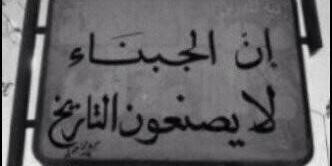 إنّ الجبنَاء
لا يصنعون التاريخ